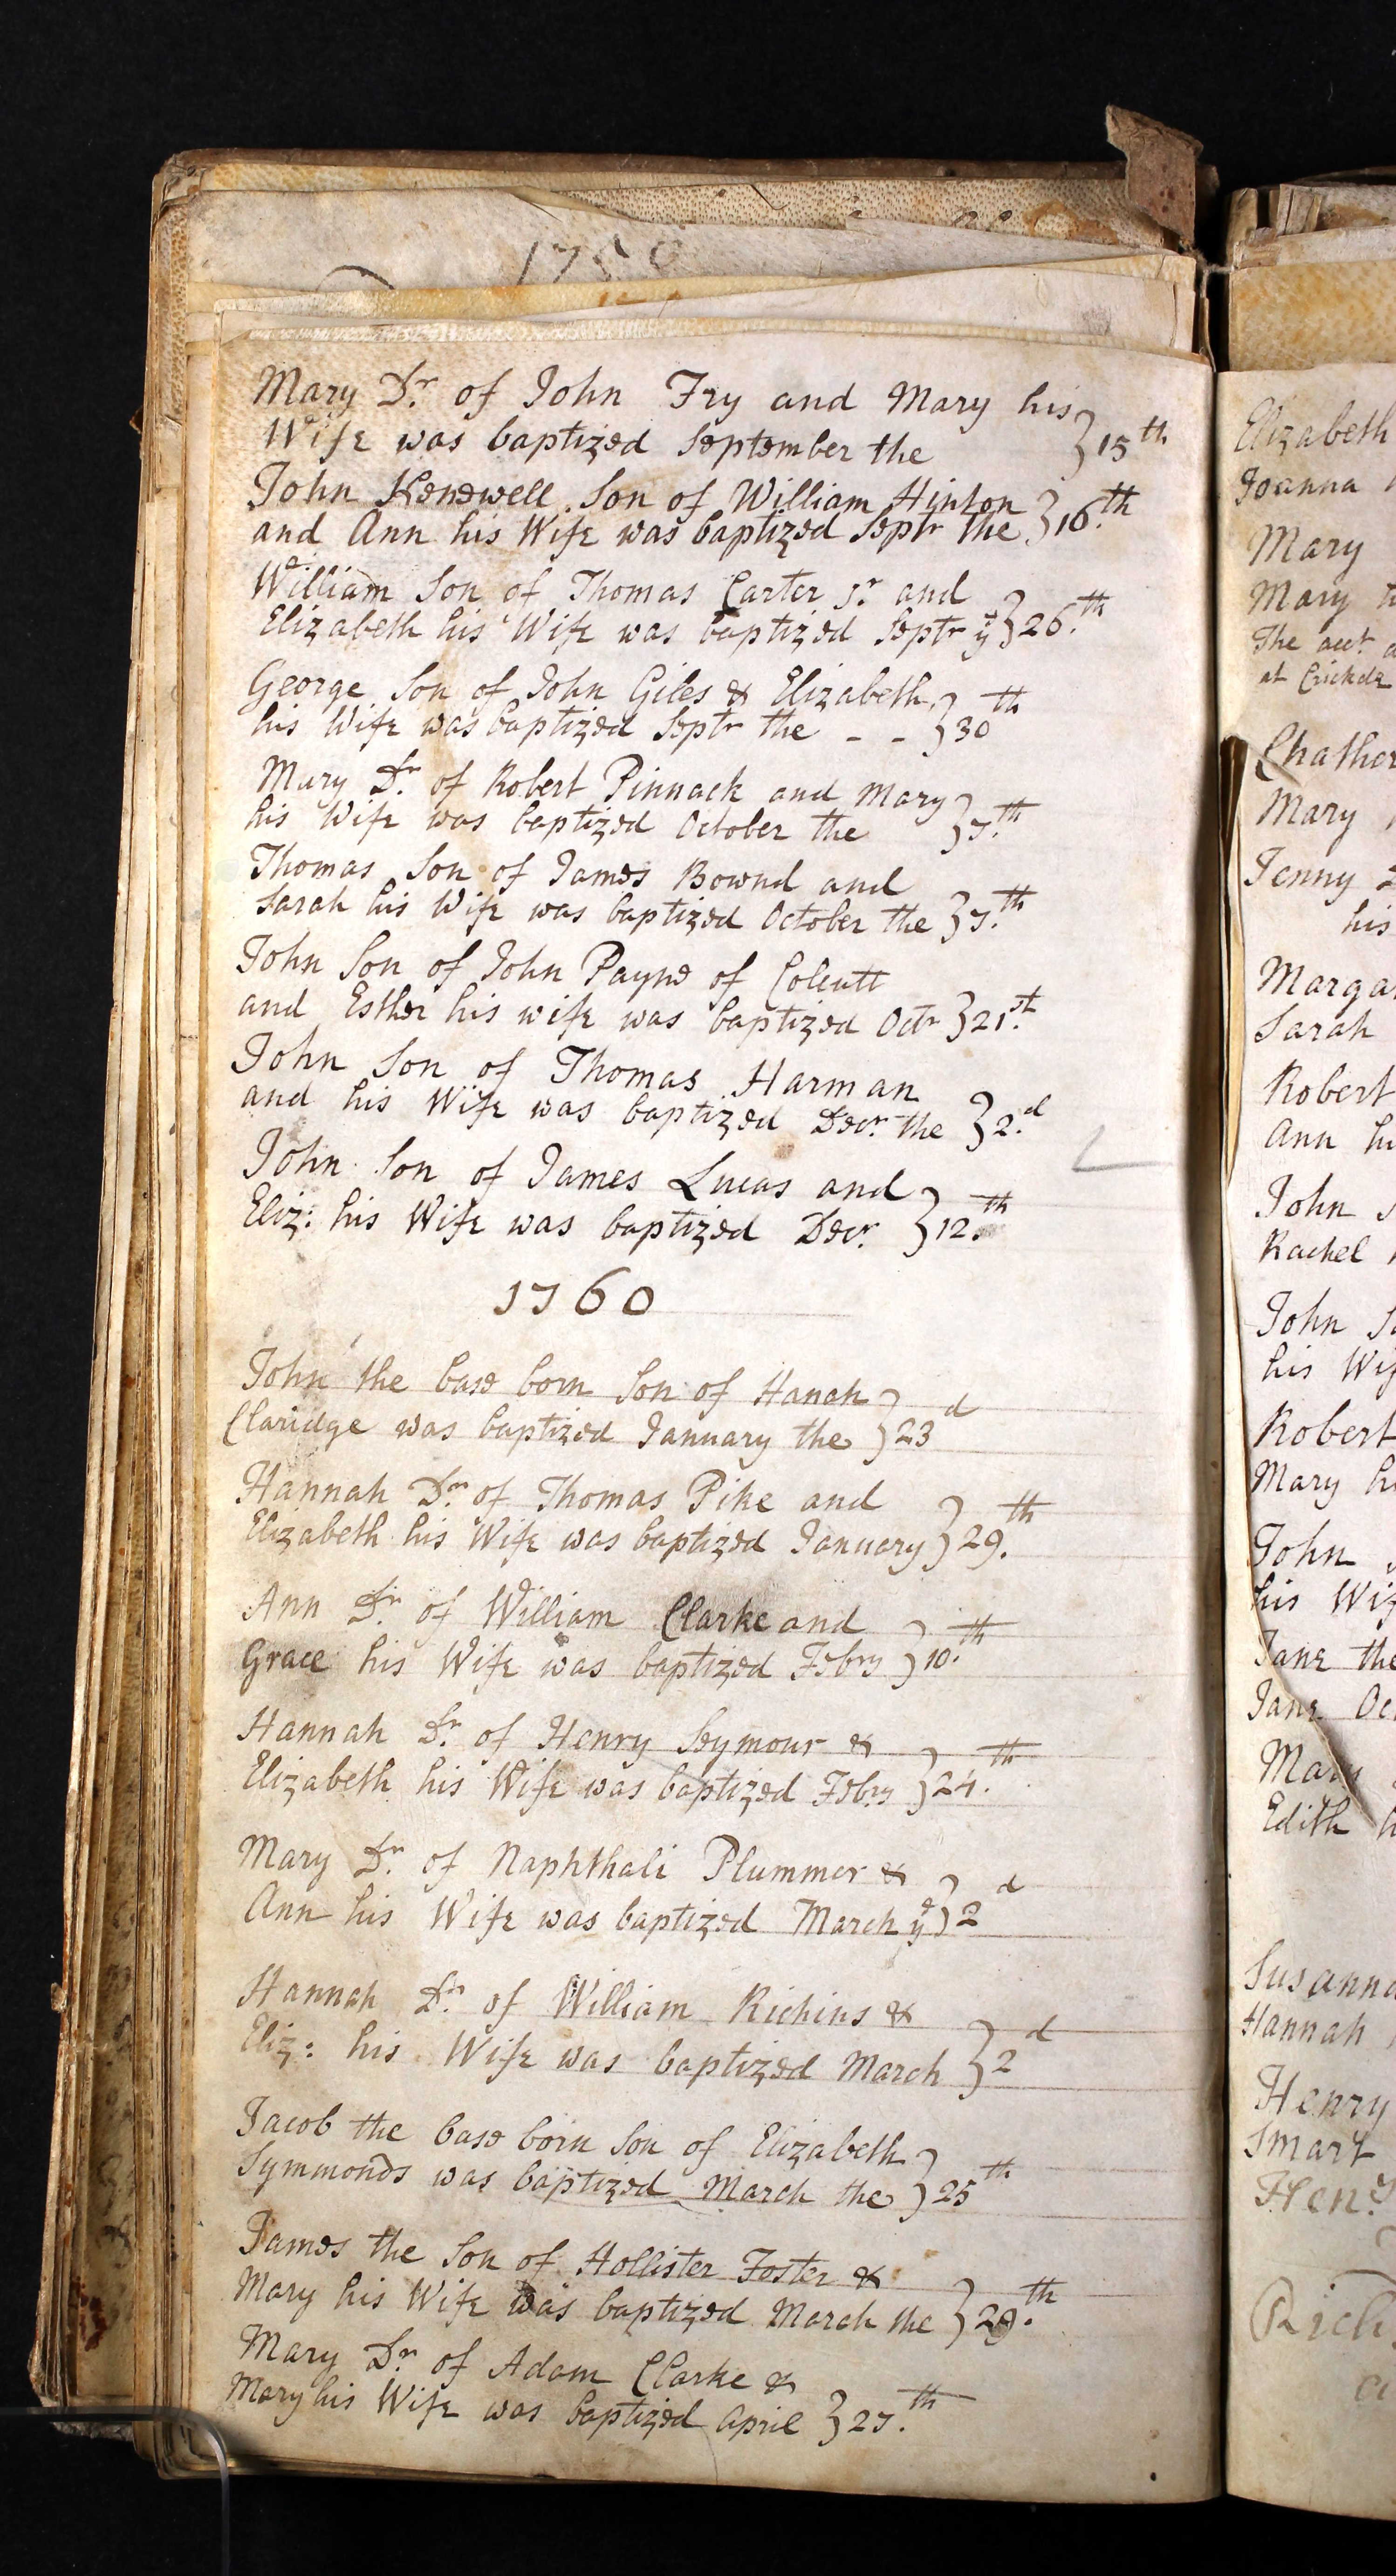 Mary Dr. of John Fry and Mary his
Wife was baptized September the } 15th
John Kenewell Son of William Hinton
and Ann his Wife was baptized Septr the } 16.th
William Son of Thomas Carter Jr. and
Elizabeth his Wife was baptized Septr ye } 26.th
George Son of John Giles & Elizabeth
his Wife was baptized Septr the - - } 30th
Mary Dr. of Robert Pinnack and Mary
his Wife was baptized October the } 7.th
Thomas Son of James Bownd and
Sarah his Wife was baptized October the } 7.th
John Son of John Payne of Colcutt
and Esther his wife was baptized Octr } 21.st
John Son of Thomas Harman
and his Wife was baptized Decr. the } 2.d
John Son of James Lucas and
Eliz: his Wife was baptized Decr. } 12.th
1760
John the base born Son of Hanah
Claridge was baptized January the } 23d
Hannah Dr. of Thomas Pike and
Elizabeth his Wife was baptized January } 29.th
Ann Dr. of William Clarke and
Grace his Wife was baptized Febry } 10.th
Hannah Dr. of Henry Seymour &
Elizabeth his Wife was baptized Febry } 24.th
Mary Dr. of Naphthali Plummer &
Ann his Wife was baptized March ye } 2d
Hannah Dr. of William Richins &
Eliz: his Wife was baptized March } 2d
Jacob the base born Son of Elizabeth
Symmonds was baptized March the } 25th
James the Son of Hollister Foster &
Mary his Wife was baptized March the } 29.th
Mary Dr. of Adam Clarke &
Mary his Wife was baptized April } 27.th
Elizabeth
Joanna
Mary
Mary
The acct
at Crickda
Mary
Jenny
his
Sarah
Robert
Ann
John
Rachel
John
his
Robert
Mary
John
his
Jane the
Jane
Edith
Hannah
Henry
Smart